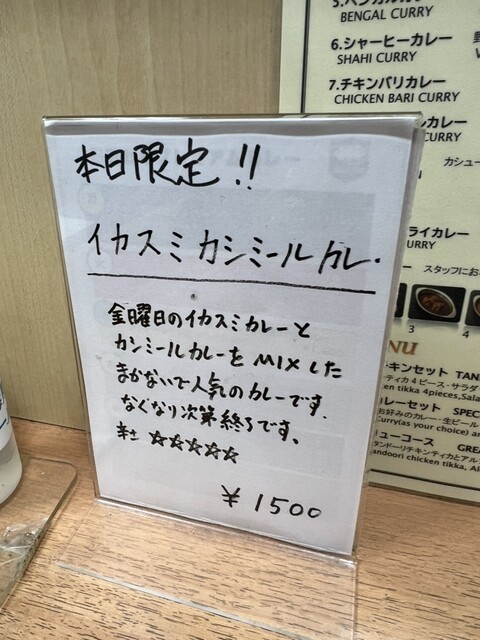 本日限定!!
イカスミカシミールカレー
金曜日のイカスミカレーと
カシミールカレーをMIXした
まかないで人気のカレーです.
なくなり次第終了です。
辛さ ☆☆☆☆☆
¥1500
BENGAL CURRY
6.シャーヒーカレー
SHAHI CURRY
7.チキンバリカレー
CHICKEN BARI CURRY
ルカレー
CURRY
カシュー
ライカレー
URRY
スタッフにお
3
4
NU
キンセット TAN
ティカ4ピース・サラダ
en tikka 4pieces,Sala
カレーセット SPEC
お好みのカレー・生ビール
Curry(as your choice) an
ューコース GREA
タンドーリチキンティカとアル
andoori chicken tikka, Al